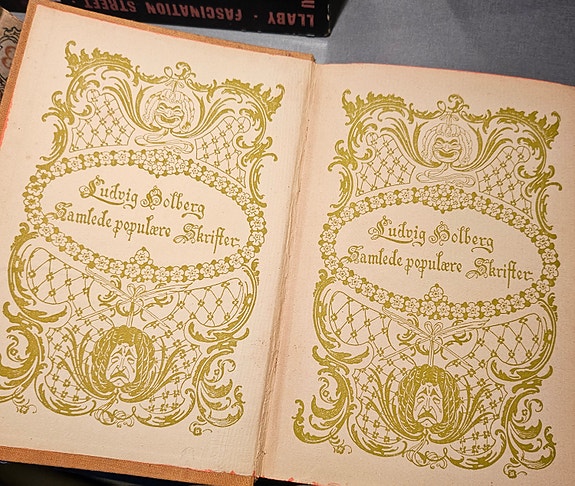 LLABY · FASCINATION STREET
Ludvig Holberg
Samlede populære Skrifter
Ludvig Holberg
Samlede populære Skrifter